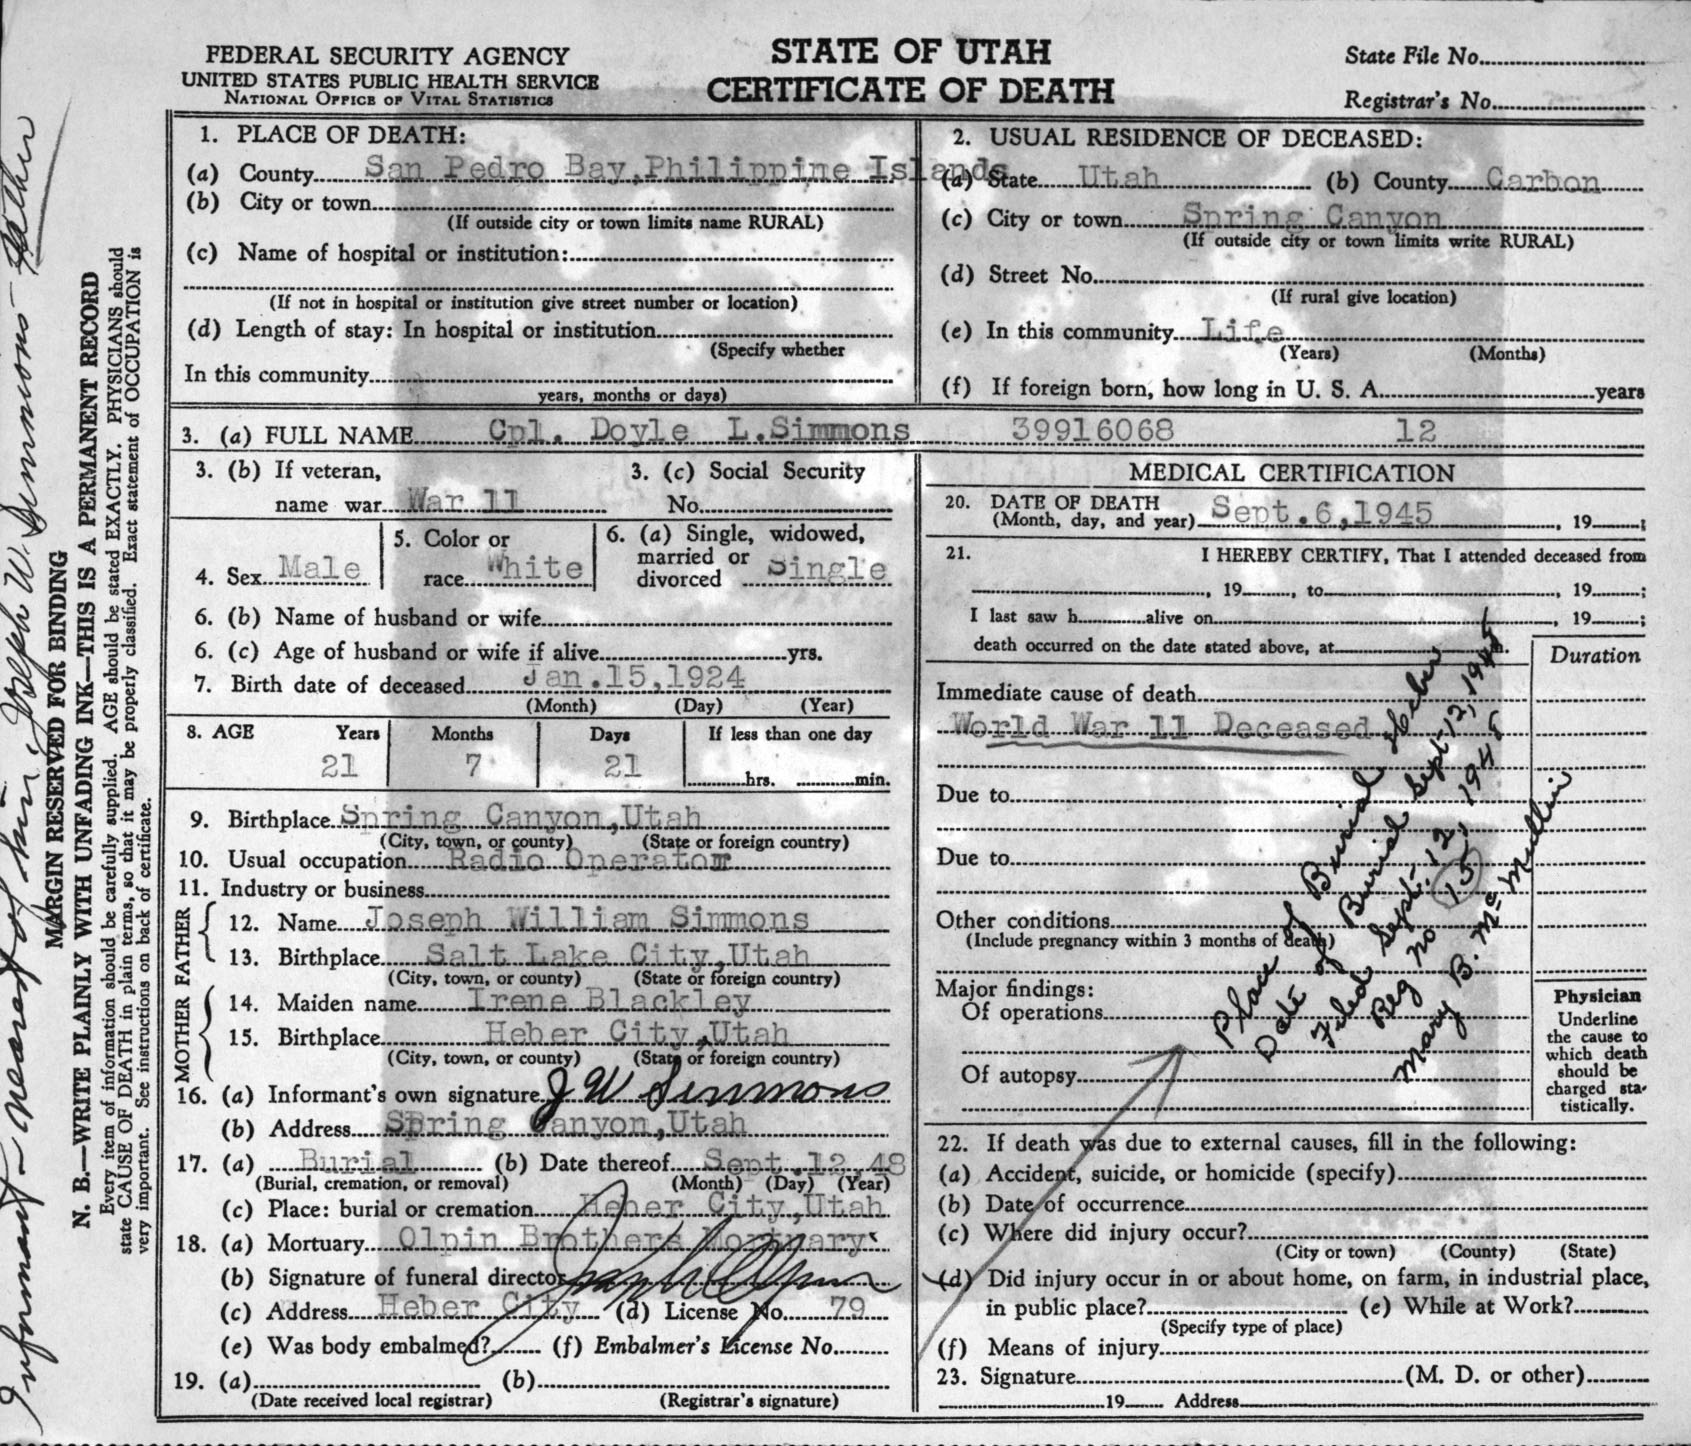 FEDERAL SECURITY AGENCY
UNITED STATES PUBLIC HEALTH SERVICE
NATIONAL OFFICE OF VITAL STATISTICS
STATE OF UTAH
CERTIFICATE OF DEATH
State File No.
Registrar's No.
1. PLACE OF DEATH:
(a) County San Pedro Bay, Philippine Islands
(b) City or town
(If outside city or town limits name RURAL)
(c) Name of hospital or institution:
(If not in hospital or institution give street number or location)
(d) Length of stay: In hospital or institution
(Specify whether
In this community
years, months or days)
2. USUAL RESIDENCE OF DECEASED:
(a) State Utah (b) County Carbon
(c) City or town Spring Canyon
(If outside city or town limits write RURAL)
(d) Street No.
(If rural give location)
(e) In this community Life
(Years) (Months)
(f) If foreign born, how long in U. S. A. years
3. (a) FULL NAME Cpl. Doyle L. Simmons 39916068 12
3. (b) If veteran, 3. (c) Social Security
name war War 11 No.
4. Sex Male
5. Color or
race White
6. (a) Single, widowed,
married or
divorced Single
6. (b) Name of husband or wife
6. (c) Age of husband or wife if alive yrs.
7. Birth date of deceased Jan. 15, 1924
(Month) (Day) (Year)
8. AGE Years Months Days If less than one day
21 7 21 hrs. min.
9. Birthplace Spring Canyon, Utah
(City, town, or county) (State or foreign country)
10. Usual occupation Radio Operator
11. Industry or business
FATHER
12. Name Joseph William Simmons
13. Birthplace Salt Lake City, Utah
(City, town, or county) (State or foreign country)
MOTHER
14. Maiden name Irene Blackley
15. Birthplace Heber City, Utah
(City, town, or county) (State or foreign country)
16. (a) Informant's own signature J W Simmons
(b) Address Spring Canyon, Utah
17. (a) Burial (b) Date thereof Sept. 12, 48
(Burial, cremation, or removal) (Month) (Day) (Year)
(c) Place: burial or cremation Heber City, Utah
18. (a) Mortuary Olpin Brothers Mortuary
(b) Signature of funeral director
(c) Address Heber City (d) License No. 79
(e) Was body embalmed? (f) Embalmer's License No.
19. (a) (b)
(Date received local registrar) (Registrar's signature)
MEDICAL CERTIFICATION
20. DATE OF DEATH
(Month, day, and year) Sept. 6, 1945, 19 ;
21. I HEREBY CERTIFY, That I attended deceased from
, 19 , to , 19 ;
I last saw h alive on , 19 ;
death occurred on the date stated above, at m.
Duration
Immediate cause of death
World War 11 Deceased
Due to
Due to
Other conditions
(Include pregnancy within 3 months of death)
Major findings:
Of operations
Of autopsy
Physician
Underline
the cause to
which death
should be
charged sta-
tistically.
Place of Burial Heber
Date of Burial Sept-12, 1948
Filed Sept. 12, 1948
Reg no 15
Mary B. McMullin
22. If death was due to external causes, fill in the following:
(a) Accident, suicide, or homicide (specify)
(b) Date of occurrence
(c) Where did injury occur?
(City or town) (County) (State)
(d) Did injury occur in or about home, on farm, in industrial place,
in public place? (e) While at Work?
(Specify type of place)
(f) Means of injury
23. Signature (M. D. or other)
19 Address
Informant - nearest of kin, Joseph W. Simmons - Father
MARGIN RESERVED FOR BINDING
N. B.—WRITE PLAINLY WITH UNFADING INK—THIS IS A PERMANENT RECORD
Every item of information should be carefully supplied. AGE should be stated EXACTLY. PHYSICIANS should
state CAUSE OF DEATH in plain terms, so that it may be properly classified. Exact statement of OCCUPATION is
very important. See instructions on back of certificate.